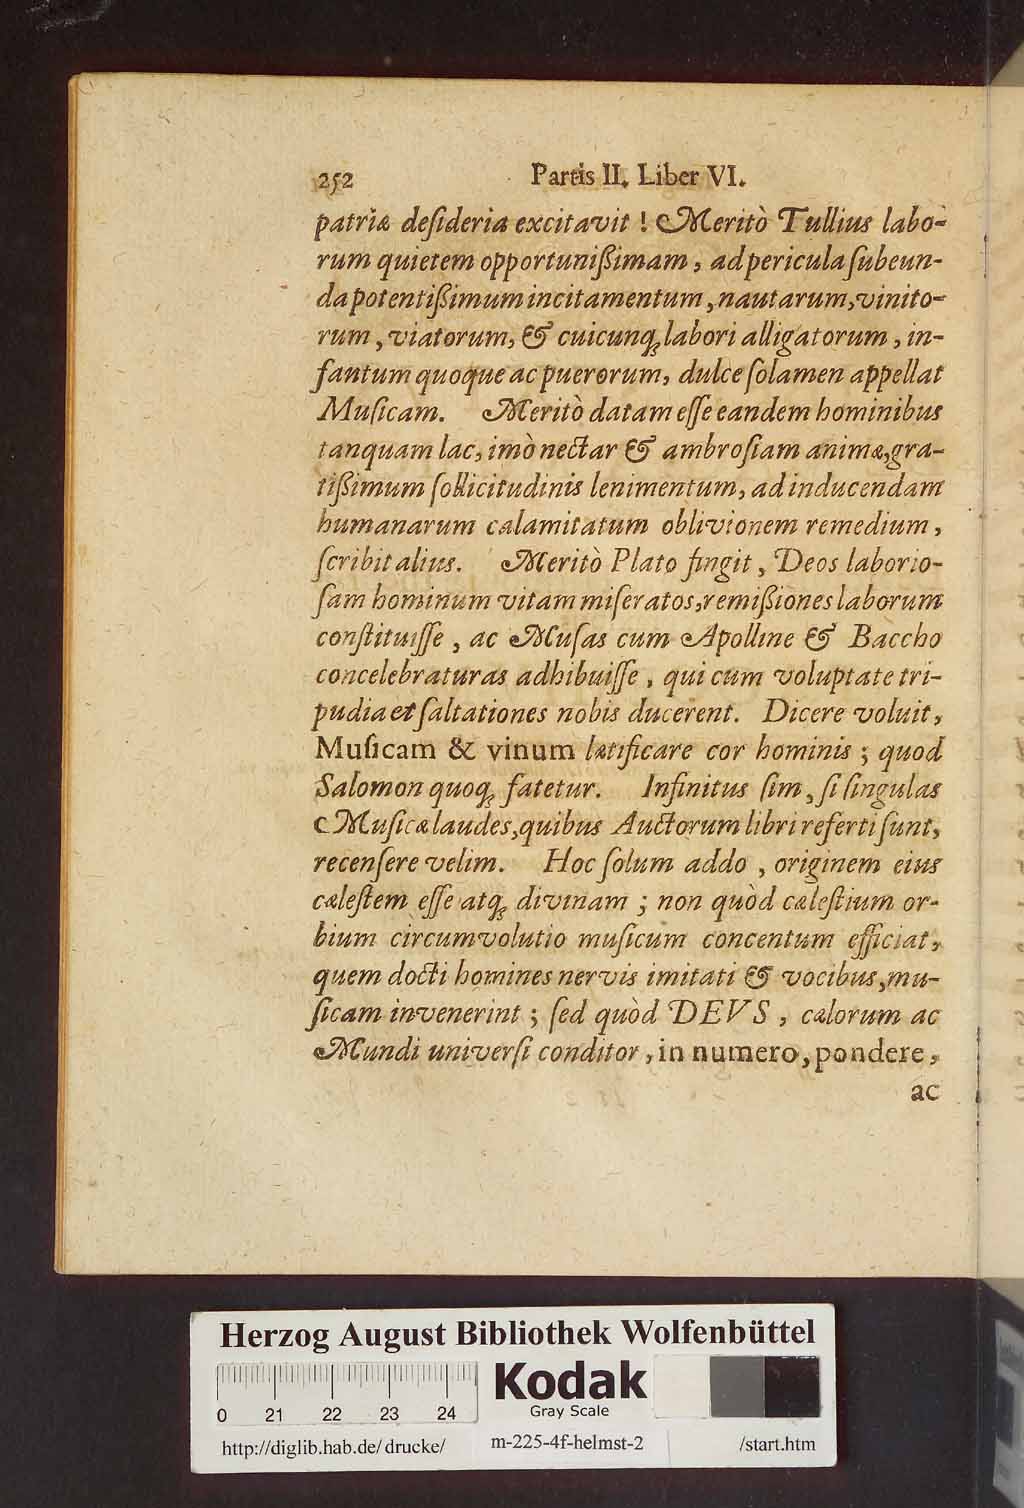 252 Partis II. Liber VI.
patriæ deſideria excitavit! Meritò Tullius labo-
rum quietem opportuniſſimam, ad pericula ſubeun-
da potentiſſimum incitamentum, nautarum, vinito-
rum, viatorum, & cuicunq; labori alligatorum, in-
fantum quoque ac puerorum, dulce ſolamen appellat
Muſicam. Meritò datam eſſe eandem hominibus
tanquam lac, imò nectar & ambroſiam animæ, gra-
tiſſimum ſollicitudinis lenimentum, ad inducendam
humanarum calamitatum oblivionem remedium,
ſcribit alius. Meritò Plato fingit, Deos laborio-
ſam hominum vitam miſeratos, remiſſiones laborum
conſtituiſſe, ac Muſas cum Apolline & Baccho
concelebraturas adhibuiſſe, qui cum voluptate tri-
pudia et ſaltationes nobis ducerent. Dicere voluit,
Muſicam & vinum lætificare cor hominis; quod
Salomon quoq; fatetur. Infinitus ſim, ſi ſingulas
Muſicæ laudes, quibus Auctorum libri referti ſunt,
recenſere velim. Hoc ſolum addo, originem eius
cæleſtem eſſe atq; divinam; non quòd cæleſtium or-
bium circumvolutio muſicum concentum efficiat,
quem docti homines nervis imitati & vocibus, mu-
ſicam invenerint; ſed quòd DEVS, cælorum ac
Mundi univerſi conditor, in numero, pondere,
ac
Herzog August Bibliothek Wolfenbüttel
0 21 22 23 24
Kodak
Gray Scale
http://diglib.hab.de/drucke/ m-225-4f-helmst-2 /start.htm